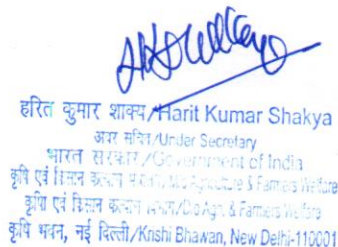 हरित कुमार शाक्य/Harit Kumar Shakya
अवर सचिव/Under Secretary
भारत सरकार/Government of India
कृषि एवं किसान कल्याण /Agriculture & Farmers Welfare
कृषि एवं किसान कल्याण विभाग/D/o Agri. & Farmers Welfare
कृषि भवन, नई दिल्ली/Krishi Bhawan, New Delhi-110001